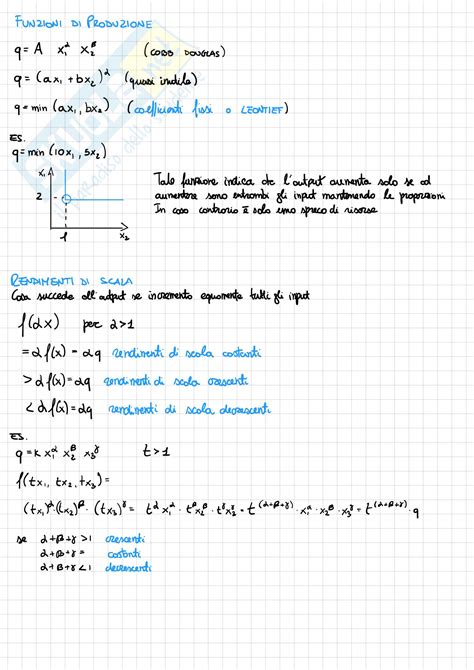 FUNZIONI DI PRODUZIONE
q = A x₁^α x₂^β (COBB DOUGLAS)
q = (ax₁ + bx₂)² (quasi lineare)
q = min (ax₁, bx₂) (coefficienti fissi o LEONTIEF)
ES.
q = min (10x₁, 5x₂)
x₁
2
1
x₂
Tale funzione indica che l'output aumenta solo se ad
aumentare sono entrambi gli input mantenendo le proporzioni
In caso contrario è solo uno spreco di risorse
RENDIMENTI DI SCALA
Cosa succede all'output se incremento egualmente tutti gli input
f(αx) per α>1
= αf(x) = αq rendimenti di scala costanti
> αf(x) = αq rendimenti di scala crescenti
< αf(x) = αq rendimenti di scala decrescenti
ES.
q = k x₁^α x₂^β x₃^γ t>1
f(tx₁, tx₂, tx₃) =
(tx₁)^α (tx₂)^β · (tx₃)^γ = t^α x₁^α · t^β x₂^β · t^γ x₃^γ = t^(α+β+γ) · x₁^α · x₂^β · x₃^γ = t^(α+β+γ) · q
se α+β+γ >1 crescenti
α+β+γ = costanti
α+β+γ <1 decrescenti